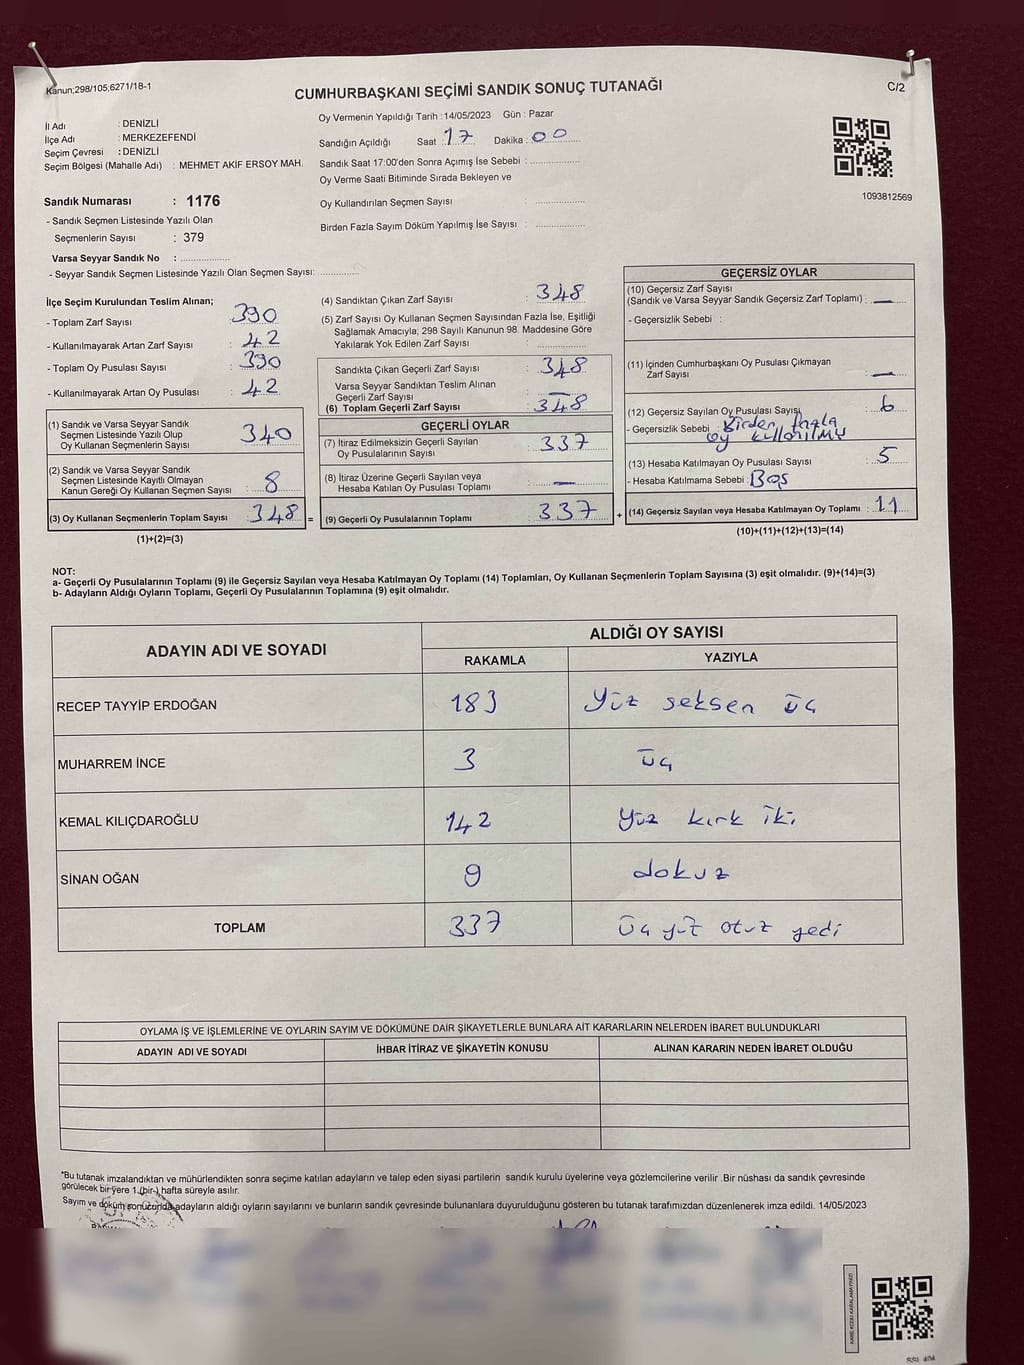 Kanun;298/105;6271/18-1
CUMHURBAŞKANI SEÇİMİ SANDIK SONUÇ TUTANAĞI
C/2
İl Adı : DENİZLİ
İlçe Adı : MERKEZEFENDİ
Seçim Çevresi : DENİZLİ
Seçim Bölgesi (Mahalle Adı) : MEHMET AKİF ERSOY MAH.
Sandık Numarası : 1176
- Sandık Seçmen Listesinde Yazılı Olan
Seçmenlerin Sayısı : 379
Varsa Seyyar Sandık No : ....................
- Seyyar Sandık Seçmen Listesinde Yazılı Olan Seçmen Sayısı: ..............
Oy Vermenin Yapıldığı Tarih : 14/05/2023 Gün : Pazar
Sandığın Açıldığı Saat : 17 Dakika : 00
Sandık Saat 17:00'den Sonra Açımış İse Sebebi : ..................
Oy Verme Saati Bitiminde Sırada Bekleyen ve
Oy Kullandırılan Seçmen Sayısı : ..................
Birden Fazla Sayım Döküm Yapılmış İse Sayısı : ..................
1093812569
İlçe Seçim Kurulundan Teslim Alınan;
- Toplam Zarf Sayısı : 390
- Kullanılmayarak Artan Zarf Sayısı : 42
- Toplam Oy Pusulası Sayısı : 390
- Kullanılmayarak Artan Oy Pusulası : 42
(1) Sandık ve Varsa Seyyar Sandık
Seçmen Listesinde Yazılı Olup
Oy Kullanan Seçmenlerin Sayısı : 340
(2) Sandık ve Varsa Seyyar Sandık
Seçmen Listesinde Kayıtlı Olmayan
Kanun Gereği Oy Kullanan Seçmen Sayısı : 8
(3) Oy Kullanan Seçmenlerin Toplam Sayısı : 348
(1)+(2)=(3)
(4) Sandıktan Çıkan Zarf Sayısı : 348
(5) Zarf Sayısı Oy Kullanan Seçmen Sayısından Fazla İse, Eşitliği
Sağlamak Amacıyla; 298 Sayılı Kanunun 98. Maddesine Göre
Yakılarak Yok Edilen Zarf Sayısı : ..................
Sandıkta Çıkan Geçerli Zarf Sayısı : 348
Varsa Seyyar Sandıktan Teslim Alınan
Geçerli Zarf Sayısı : —
(6) Toplam Geçerli Zarf Sayısı : 348
GEÇERLİ OYLAR
(7) İtiraz Edilmeksizin Geçerli Sayılan
Oy Pusulalarının Sayısı : 337
(8) İtiraz Üzerine Geçerli Sayılan veya
Hesaba Katılan Oy Pusulası Toplamı : —
= (9) Geçerli Oy Pusulalarının Toplamı : 337
GEÇERSİZ OYLAR
(10) Geçersiz Zarf Sayısı
(Sandık ve Varsa Seyyar Sandık Geçersiz Zarf Toplamı) : —
- Geçersizlik Sebebi :
(11) İçinden Cumhurbaşkanı Oy Pusulası Çıkmayan
Zarf Sayısı : —
(12) Geçersiz Sayılan Oy Pusulası Sayısı : 6
- Geçersizlik Sebebi : Birden fazla
oy kullanılmış
(13) Hesaba Katılmayan Oy Pusulası Sayısı : 5
- Hesaba Katılmama Sebebi : Boş
+ (14) Geçersiz Sayılan veya Hesaba Katılmayan Oy Toplamı : 11
(10)+(11)+(12)+(13)=(14)
NOT:
a- Geçerli Oy Pusulalarının Toplamı (9) ile Geçersiz Sayılan veya Hesaba Katılmayan Oy Toplamı (14) Toplamları, Oy Kullanan Seçmenlerin Toplam Sayısına (3) eşit olmalıdır. (9)+(14)=(3)
b- Adayların Aldığı Oyların Toplamı, Geçerli Oy Pusulalarının Toplamına (9) eşit olmalıdır.
ADAYIN ADI VE SOYADI
ALDIĞI OY SAYISI
RAKAMLA YAZIYLA
RECEP TAYYİP ERDOĞAN 183 Yüz seksen üç
MUHARREM İNCE 3 üç
KEMAL KILIÇDAROĞLU 142 Yüz kırk iki
SİNAN OĞAN 9 dokuz
TOPLAM 337 üç yüz otuz yedi
OYLAMA İŞ VE İŞLEMLERİNE VE OYLARIN SAYIM VE DÖKÜMÜNE DAİR ŞİKAYETLERLE BUNLARA AİT KARARLARIN NELERDEN İBARET BULUNDUKLARI
ADAYIN ADI VE SOYADI İHBAR İTİRAZ VE ŞİKAYETİN KONUSU ALINAN KARARIN NEDEN İBARET OLDUĞU
*Bu tutanak imzalandıktan ve mühürlendikten sonra seçime katılan adayların ve talep eden siyasi partilerin sandık kurulu üyelerine veya gözlemcilerine verilir .Bir nüshası da sandık çevresinde
görülecek bir yere 1.(bir-) hafta süreyle asılır.
Sayım ve döküm sonucunda adayların aldığı oyların sayılarını ve bunların sandık çevresinde bulunanlara duyurulduğunu gösteren bu tutanak tarafımızdan düzenlenerek imza edildi. 14/05/2023